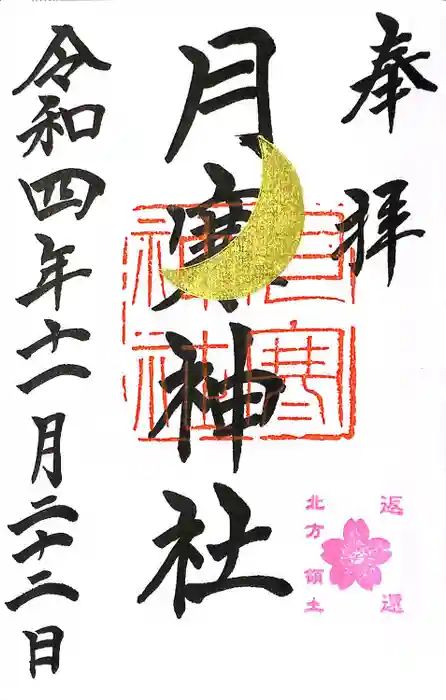 奉拝
月寒神社
月寒神社
返還
北方領土
令和四年十一月二十二日